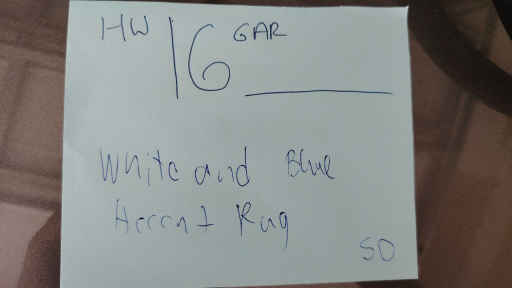 HW 16 GAR
White and Blue
Accent Rug
SO